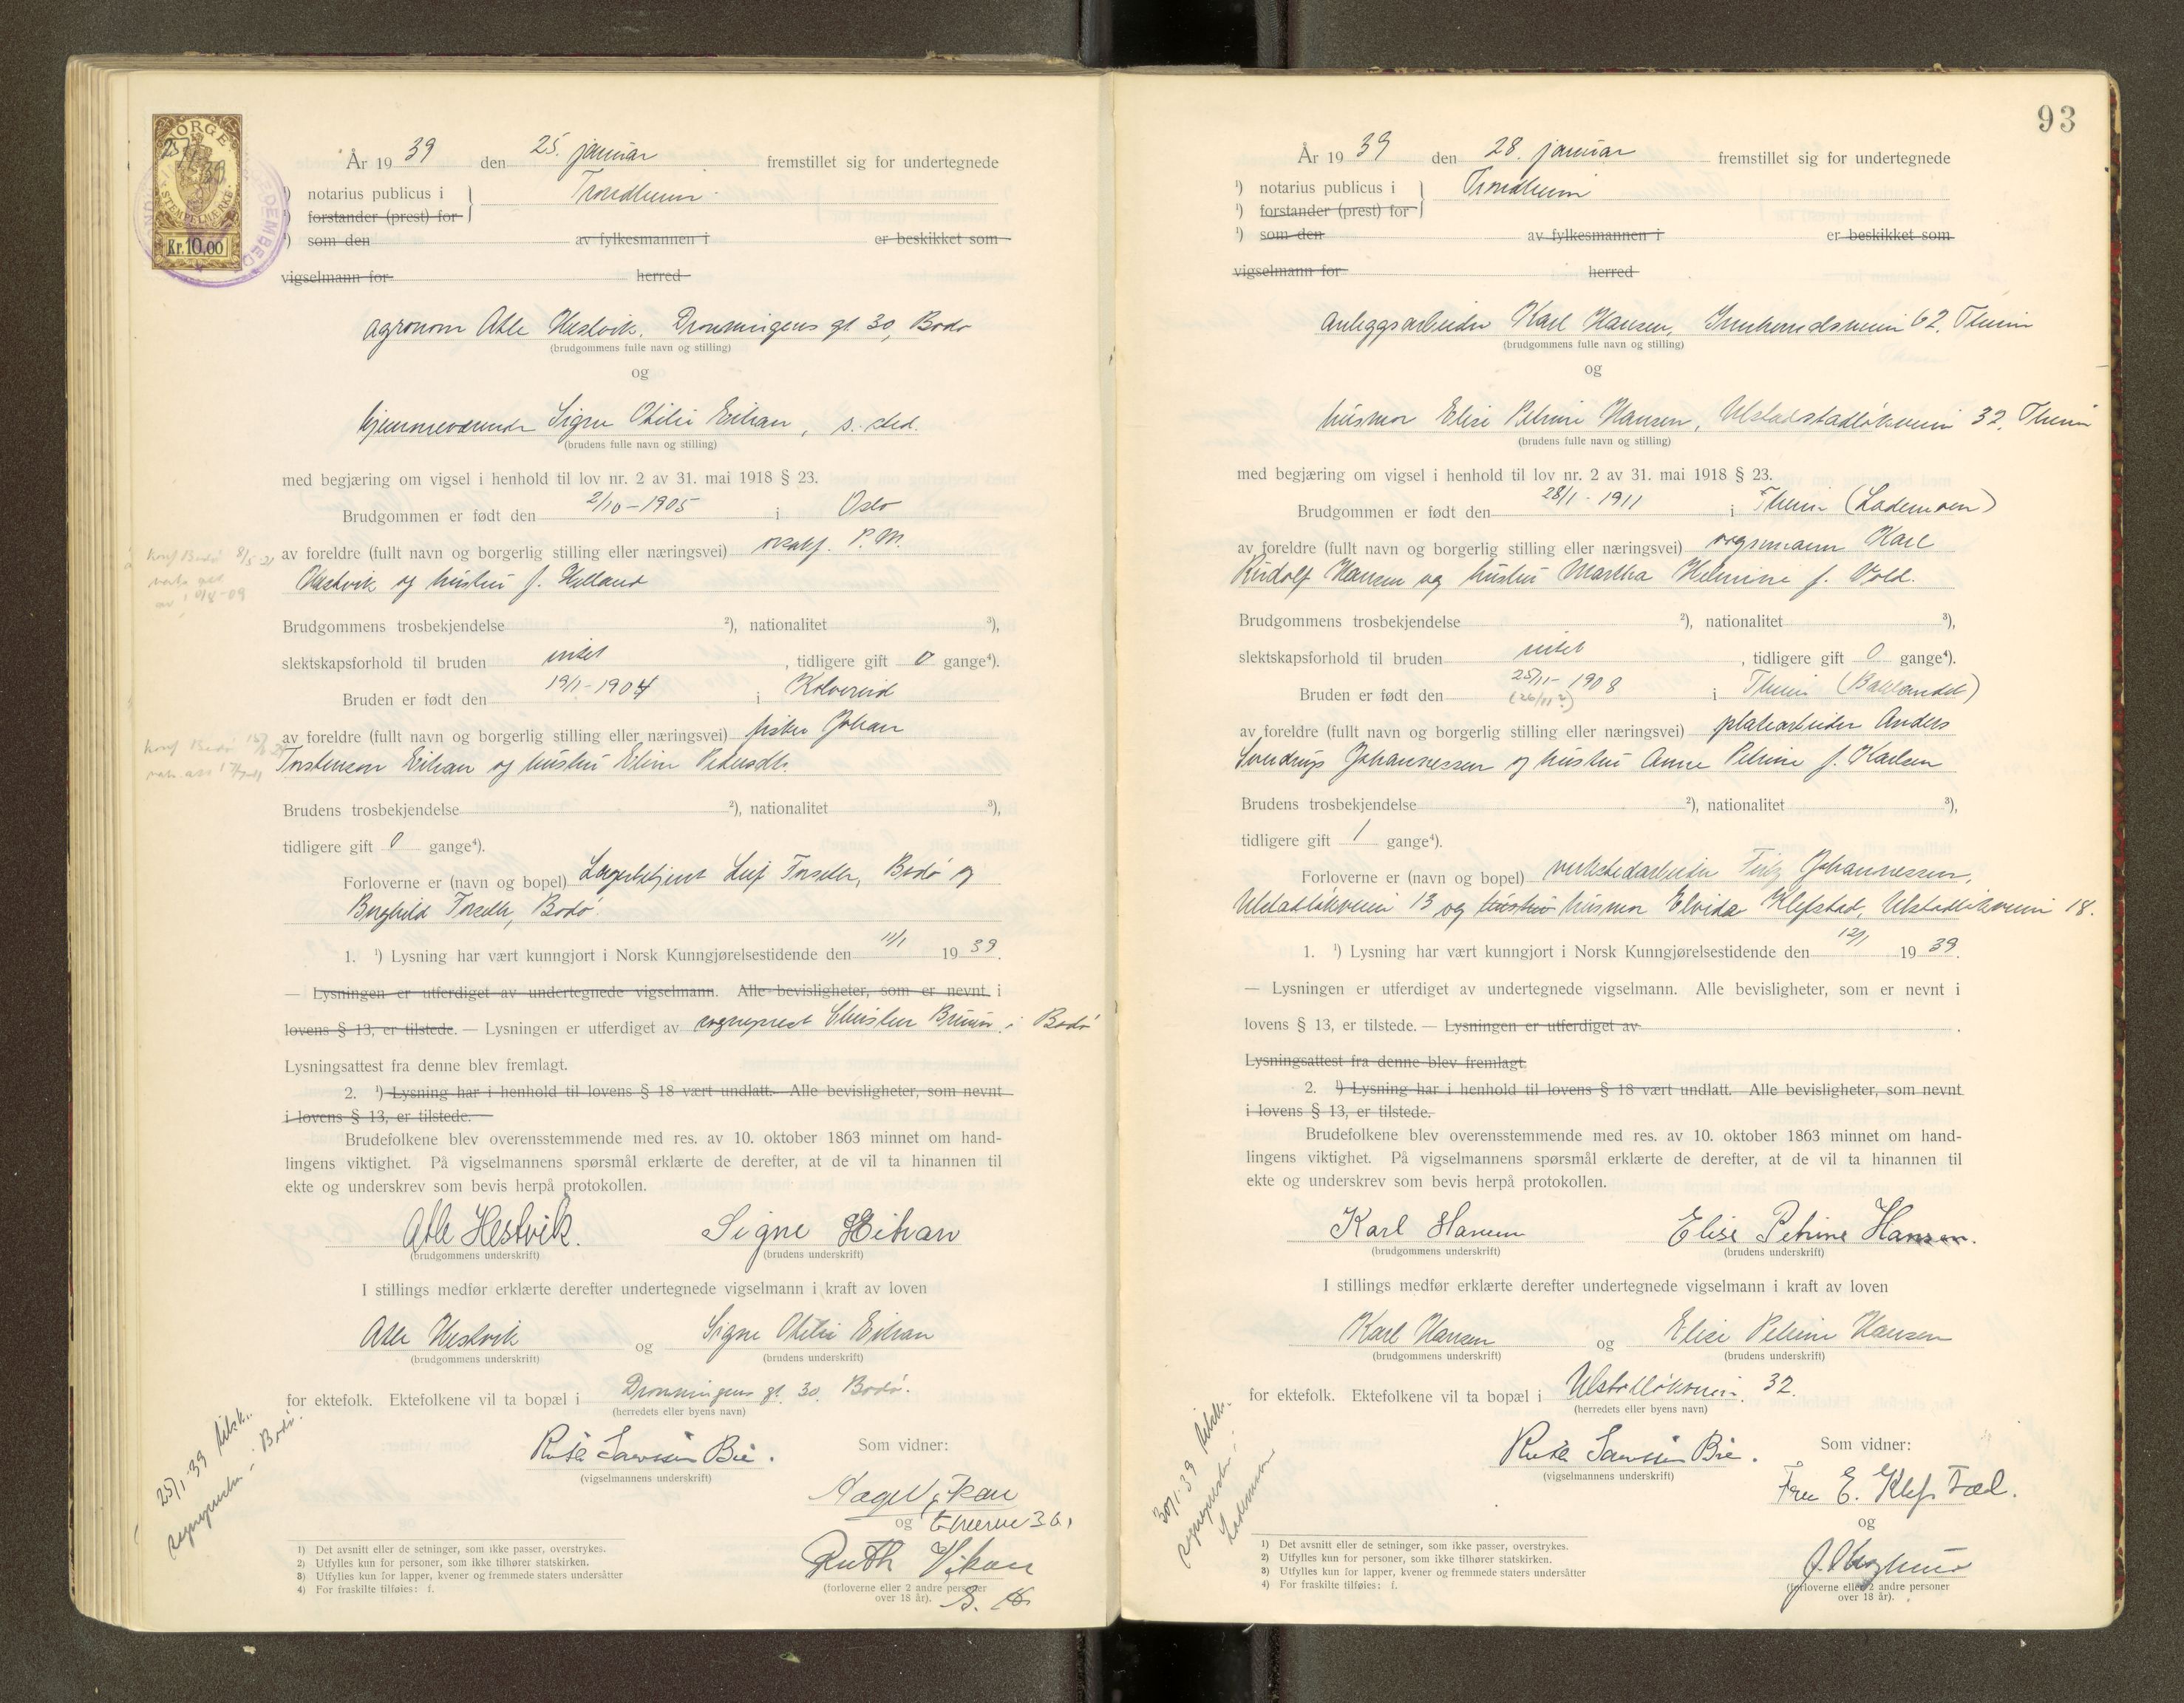 NORGE
25/1-39
STEMPELMERKE
Kr.10,00
År 19 39 den 25. januar fremstillet sig for undertegnede
¹) notarius publicus i Trondheim
¹) forstander (prest) for
¹) som den av fylkesmannen i er beskikket som
vigselmann for herred
agronom Atle Hestvik, Dronningens gt 30, Bodø
(brudgommens fulle navn og stilling)
og
hjemmeværende Signe Otilie Eithan, s. sted.
(brudens fulle navn og stilling)
med begjæring om vigsel i henhold til lov nr. 2 av 31. mai 1918 § 23.
Brudgommen er født den 2/10-1905 i Oslo
av foreldre (fullt navn og borgerlig stilling eller næringsvei) P. M.
Hestvik og hustru f. Helland
konf Bodø 8/5-21
Brudgommens trosbekjendelse ²), nationalitet ³),
slektskapsforhold til bruden intet , tidligere gift 0 gange⁴).
Bruden er født den 19/1-1904 i Kolvereid
av foreldre (fullt navn og borgerlig stilling eller næringsvei) fisker Johan
Torstensen Eithan og hustru Eline Pedersdtr.
konf Bodø
Brudens trosbekjendelse ²), nationalitet ³),
tidligere gift 0 gange⁴).
Forloverne er (navn og bopel) Lagerbetjent Leif Torseth, Bodø og
Borghild Torseth, Bodø.
1. ¹) Lysning har vært kunngjort i Norsk Kunngjørelsestidende den 11/1 19 39.
— Lysningen er utferdiget av undertegnede vigselmann. Alle bevisligheter, som er nevnt i
lovens § 13, er tilstede. — Lysningen er utferdiget av sogneprest Christen Bruun i Bodø
Lysningsattest fra denne blev fremlagt.
2. ¹) Lysning har i henhold til lovens § 18 vært undlatt. Alle bevisligheter, som nevnt
i lovens § 13, er tilstede.
Brudefolkene blev overensstemmende med res. av 10. oktober 1863 minnet om hand-
lingens viktighet. På vigselmannens spørsmål erklærte de derefter, at de vil ta hinannen til
ekte og underskrev som bevis herpå protokollen.
Atle Hestvik. Signe Eithan
(brudgommens underskrift) (brudens underskrift)
I stillings medfør erklærte derefter undertegnede vigselmann i kraft av loven
Atle Hestvik og Signe Otilie Eithan
(brudgommens underskrift) (brudens underskrift)
for ektefolk. Ektefolkene vil ta bopæl i Dronningens gt. 30. Bodø.
(herredets eller byens navn)
25/1-39 tilsk.
sognepresten i Bodø.
Som vidner:
(vigselmannens underskrift)
Aage Vikan
og
Ruth Vikan
(forloverne eller 2 andre personer
over 18 år).
1) Det avsnitt eller de setninger, som ikke passer, overstrykes.
2) Utfylles kun for personer, som ikke tilhører statskirken.
3) Utfylles kun for lapper, kvener og fremmede staters undersåtter
4) For fraskilte tilføies: f.
93
År 19 39 den 28. januar fremstillet sig for undertegnede
¹) notarius publicus i Trondheim
¹) forstander (prest) for
¹) som den av fylkesmannen i er beskikket som
vigselmann for herred
anleggsarbeider Karl Hansen, Innherredsveien 62, Theim
(brudgommens fulle navn og stilling)
og
husmor Elise Petrine Hansen, Ulstadløkveien 32, Theim
(brudens fulle navn og stilling)
med begjæring om vigsel i henhold til lov nr. 2 av 31. mai 1918 § 23.
Brudgommen er født den 28/1-1911 i Theim (Lademoen)
av foreldre (fullt navn og borgerlig stilling eller næringsvei) Karl
Rudolf Hansen og hustru Martha Helmine f. Vold.
Brudgommens trosbekjendelse ²), nationalitet ³),
slektskapsforhold til bruden intet , tidligere gift 0 gange⁴).
Bruden er født den 25/11-1908 i Theim (Baklandet)
(26/11?)
av foreldre (fullt navn og borgerlig stilling eller næringsvei) platearbeider Anders
Sverdrup Johannessen og hustru Anne Petrine f. Karlsen
Brudens trosbekjendelse ²), nationalitet ³),
tidligere gift 1 gange⁴).
Forloverne er (navn og bopel) verkstedarbeider Fritz Johannessen,
Ulstadløkveien 13 og hustru husmor Elvida Klefstad, Ulstadløkveien 18.
1. ¹) Lysning har vært kunngjort i Norsk Kunngjørelsestidende den 12/1 19 39.
— Lysningen er utferdiget av undertegnede vigselmann. Alle bevisligheter, som er nevnt i
lovens § 13, er tilstede. — Lysningen er utferdiget av .
Lysningsattest fra denne blev fremlagt.
2. ¹) Lysning har i henhold til lovens § 18 vært undlatt. Alle bevisligheter, som nevnt
i lovens § 13, er tilstede.
Brudefolkene blev overensstemmende med res. av 10. oktober 1863 minnet om hand-
lingens viktighet. På vigselmannens spørsmål erklærte de derefter, at de vil ta hinannen til
ekte og underskrev som bevis herpå protokollen.
Karl Hansen Elise Petrine Hansen.
(brudgommens underskrift) (brudens underskrift)
I stillings medfør erklærte derefter undertegnede vigselmann i kraft av loven
Karl Hansen og Elise Petrine Hansen
(brudgommens underskrift) (brudens underskrift)
for ektefolk. Ektefolkene vil ta bopæl i Ulstadløkveien 32.
(herredets eller byens navn)
30/1-39 tilsk.
sognepresten i
Lademoen
Som vidner:
(vigselmannens underskrift)
Fru E. Klefstad.
og
(forloverne eller 2 andre personer
over 18 år).
1) Det avsnitt eller de setninger, som ikke passer, overstrykes.
2) Utfylles kun for personer, som ikke tilhører statskirken.
3) Utfylles kun for lapper, kvener og fremmede staters undersåtter
4) For fraskilte tilføies: f.